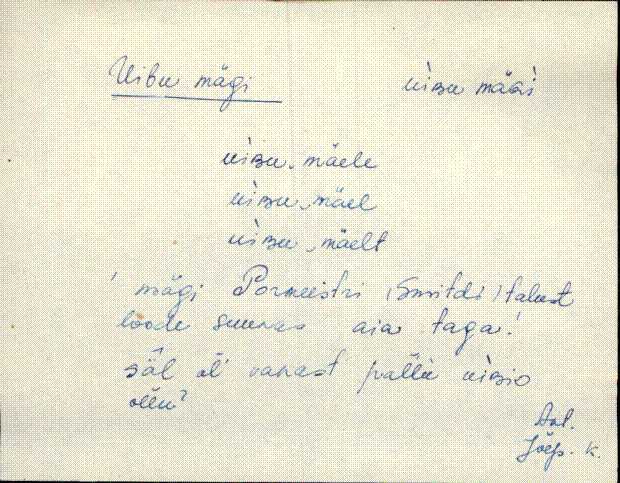 Uibu mägi ùiʙu mäɢi
ùiʙu mäele
ùiʙu mäel
ùiʙu mäelt
' mägi Pormeistri (Smitdi) talust
loode suunas aia taga!
säl oli vanast pallu uiʙio
ollu?
Jõep. k.